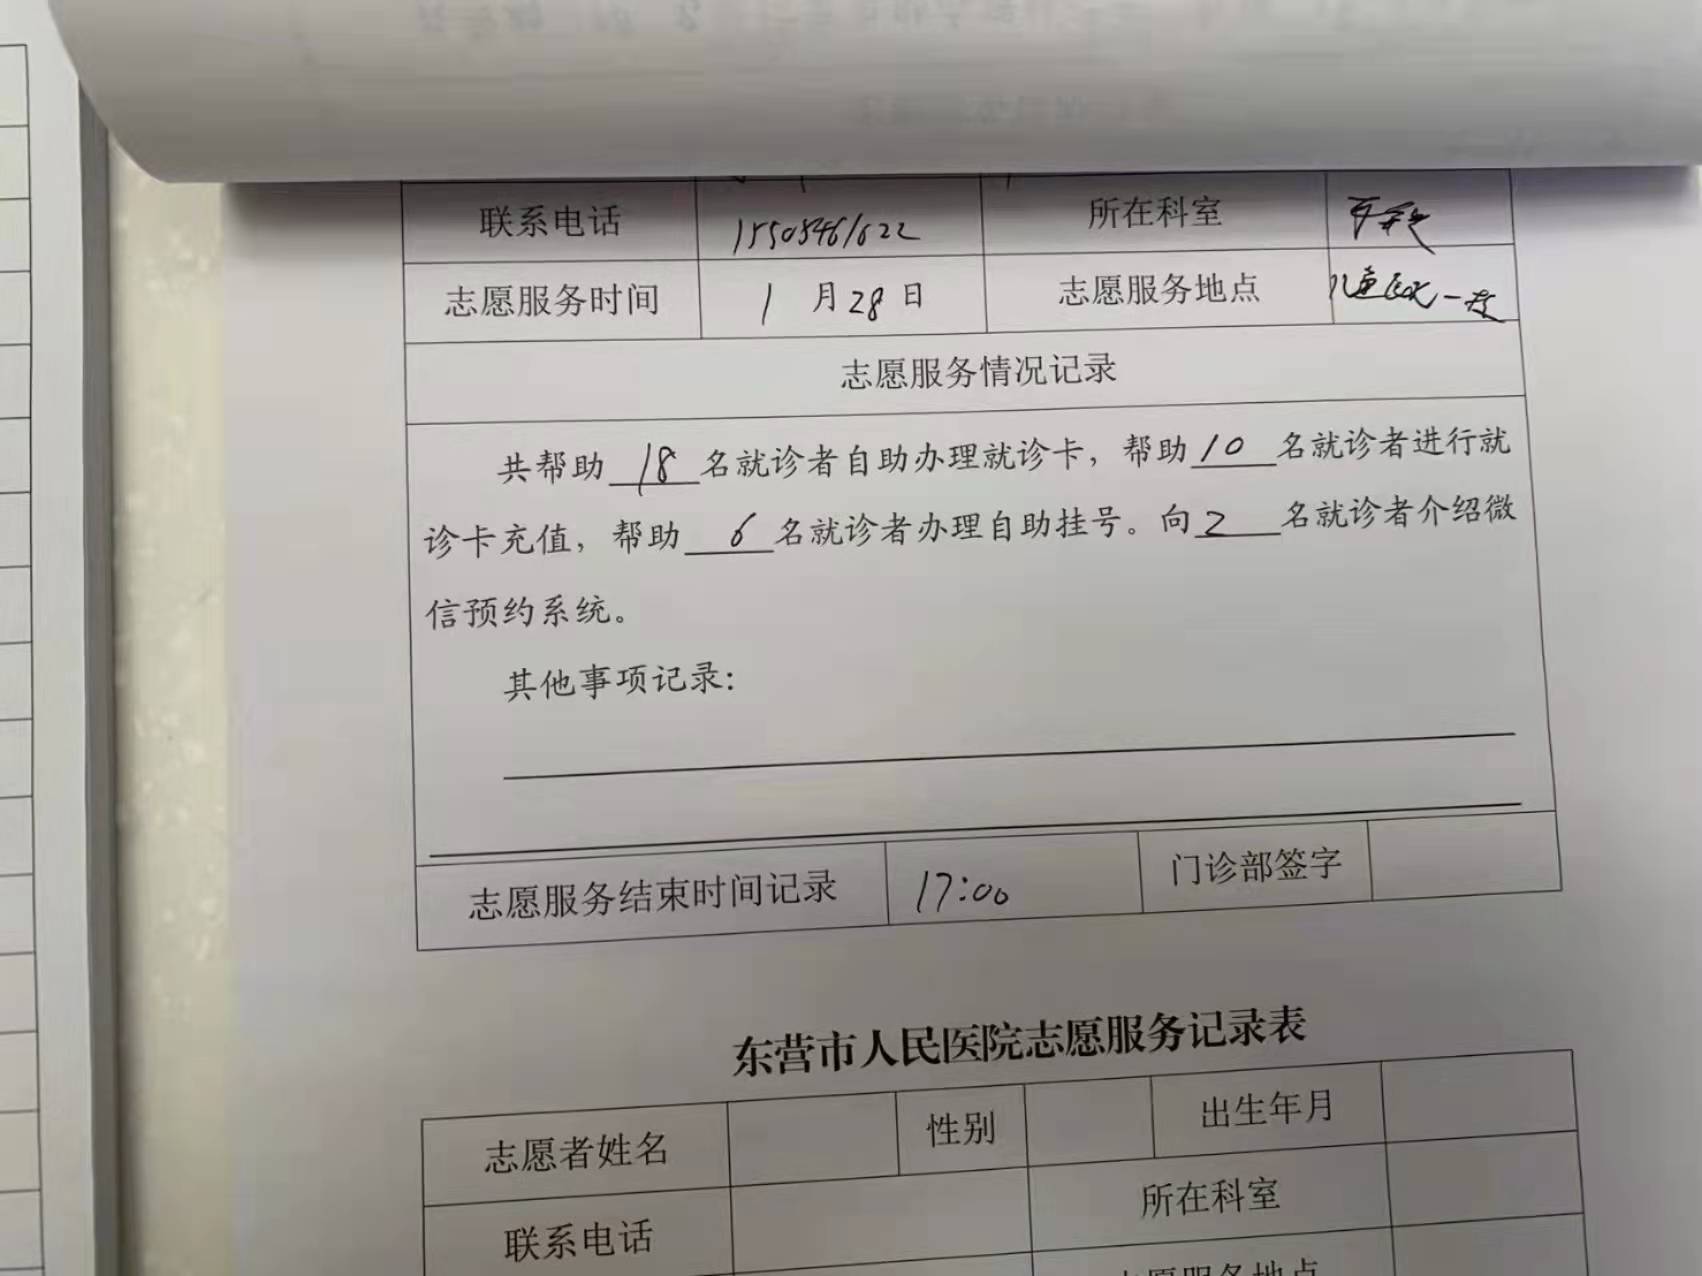 联系电话 15505461622 所在科室
志愿服务时间 1月28日 志愿服务地点
志愿服务情况记录
共帮助 18 名就诊者自助办理就诊卡，帮助 10 名就诊者进行就
诊卡充值，帮助 6 名就诊者办理自助挂号。向 2 名就诊者介绍微
信预约系统。
其他事项记录：
志愿服务结束时间记录 17:00 门诊部签字
东营市人民医院志愿服务记录表
志愿者姓名 性别 出生年月
联系电话 所在科室
志愿服务地点